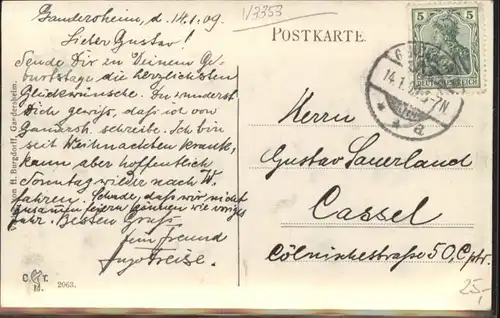 Gandersheim, d. 14.1.09.
Lieber Gustav!
Sende Dir zu Deinem Ge-
burtstage die herzlichsten
Glückwünsche. Du wunderst
Dich gewiß, daß ich von
Gandersh. schreibe. Ich bin
seit Weihnachten krank,
kann aber hoffentlich
Sonntag wieder nach W.
fahren. Schade, daß wir nicht
zusammen feiern können wie voriges
Jahr. Besten Gruß
Dein Freund
1/3353
POSTKARTE.
5 5
DEUTSCHES REICH
14.1.
5-7N
* * a
Herrn
Gustav Sauerland
Cassel
Cölnischestraße 50, C ptr.
H. Burgdorff, Gandersheim.
M. 2063.
25,-